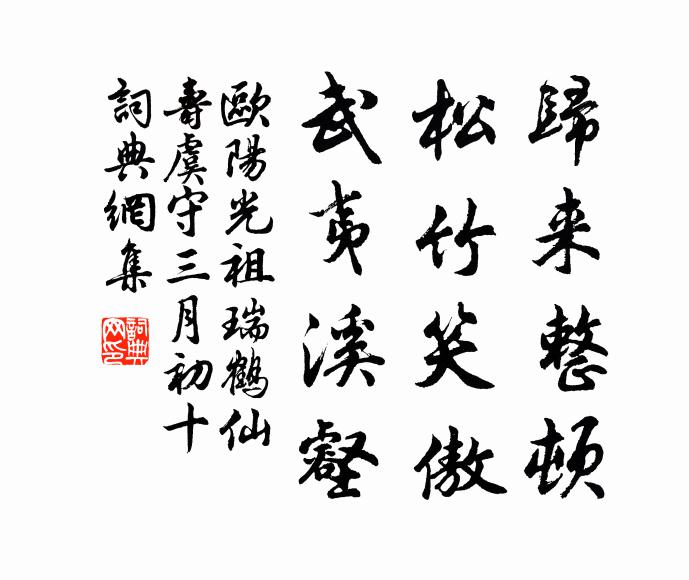 歸来整頓
松竹笑傲
武夷溪壑
歐陽光祖瑞鶴仙
壽虞守三月初十
詞典網集
詞典网印